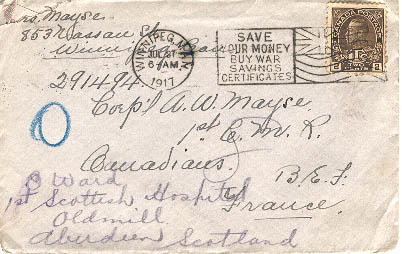 Mrs. Mayse
853 Nassau St.
Winnipeg Can
WINNIPEG, MAN.
JUL 27
6 AM
1917
SAVE
YOUR MONEY
BUY WAR
SAVINGS
CERTIFICATES
CANADA POSTAGE
291494.
Corp'l A. W. Mayse
1st C. M. R.
Canadians.
B. E. F.
France.
B Ward
1st Scottish Hospital
Oldmill
Aberdeen Scotland